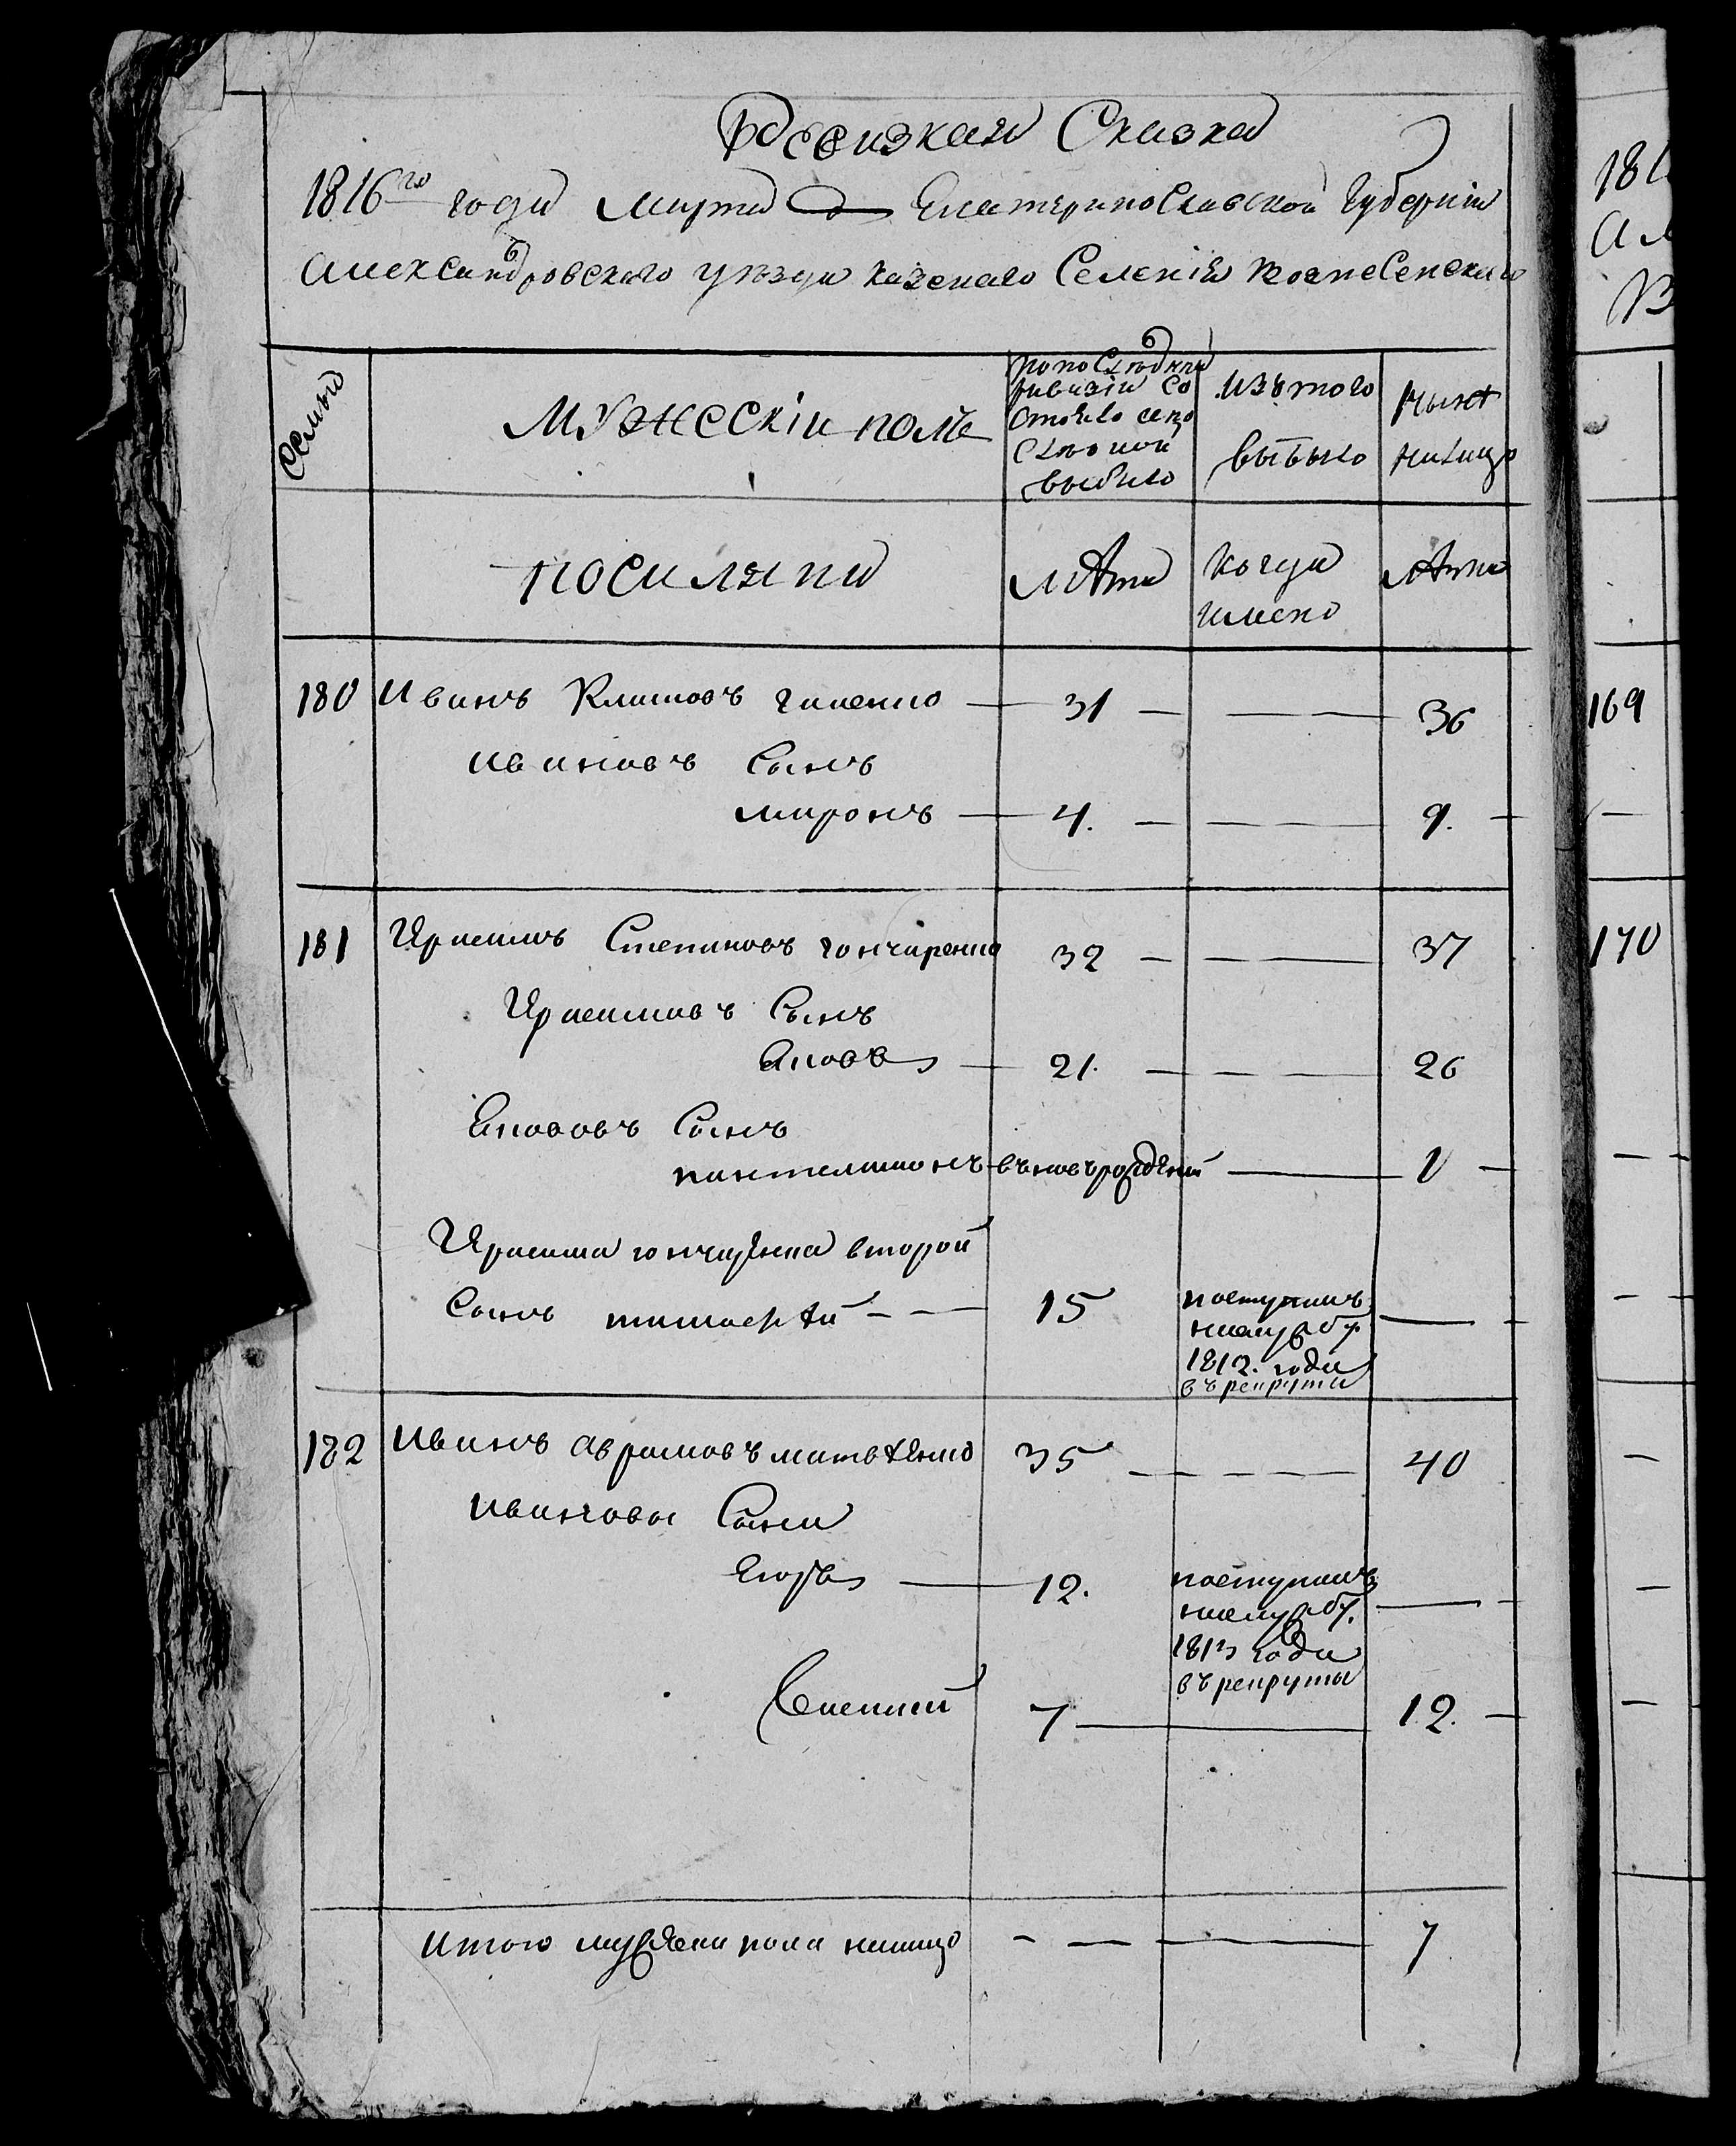 Ревизкая Сказка
1816го года марта Екатеринославской Губернїи
Александровскаго уѣзда казенаго Селенїя вознесенскаго
Семьи
Мужескїи полъ
по последней
ривизїи со
стояло и по
слѣ оной
выбыло
изъ того
выбыло
нынѣ
налицо
поселяни
лѣта
когда
имено
лѣта
180 Иванъ Климовъ 31 36
Ивановъ Сынъ
миронъ 4. 9.
181 Герасимъ Степановъ гончаренко 32 37
Герасимовъ Сынъ
Яковъ 21. 26
Яковов Сынъ
пантелимонъ вновь рожденый 1
Герасима гончаренка второй
Сынъ тимофѣй 15
поступилъ
1812. года
въ рекруты
182 Иванъ аврамовъ матвѣенко 35 40
Ивановы Сыни
Егоръ 12.
поступилъ
1813 года
въ рекруты
Евсений 7 12.
Итого мужеска пола налицо 7
169
170